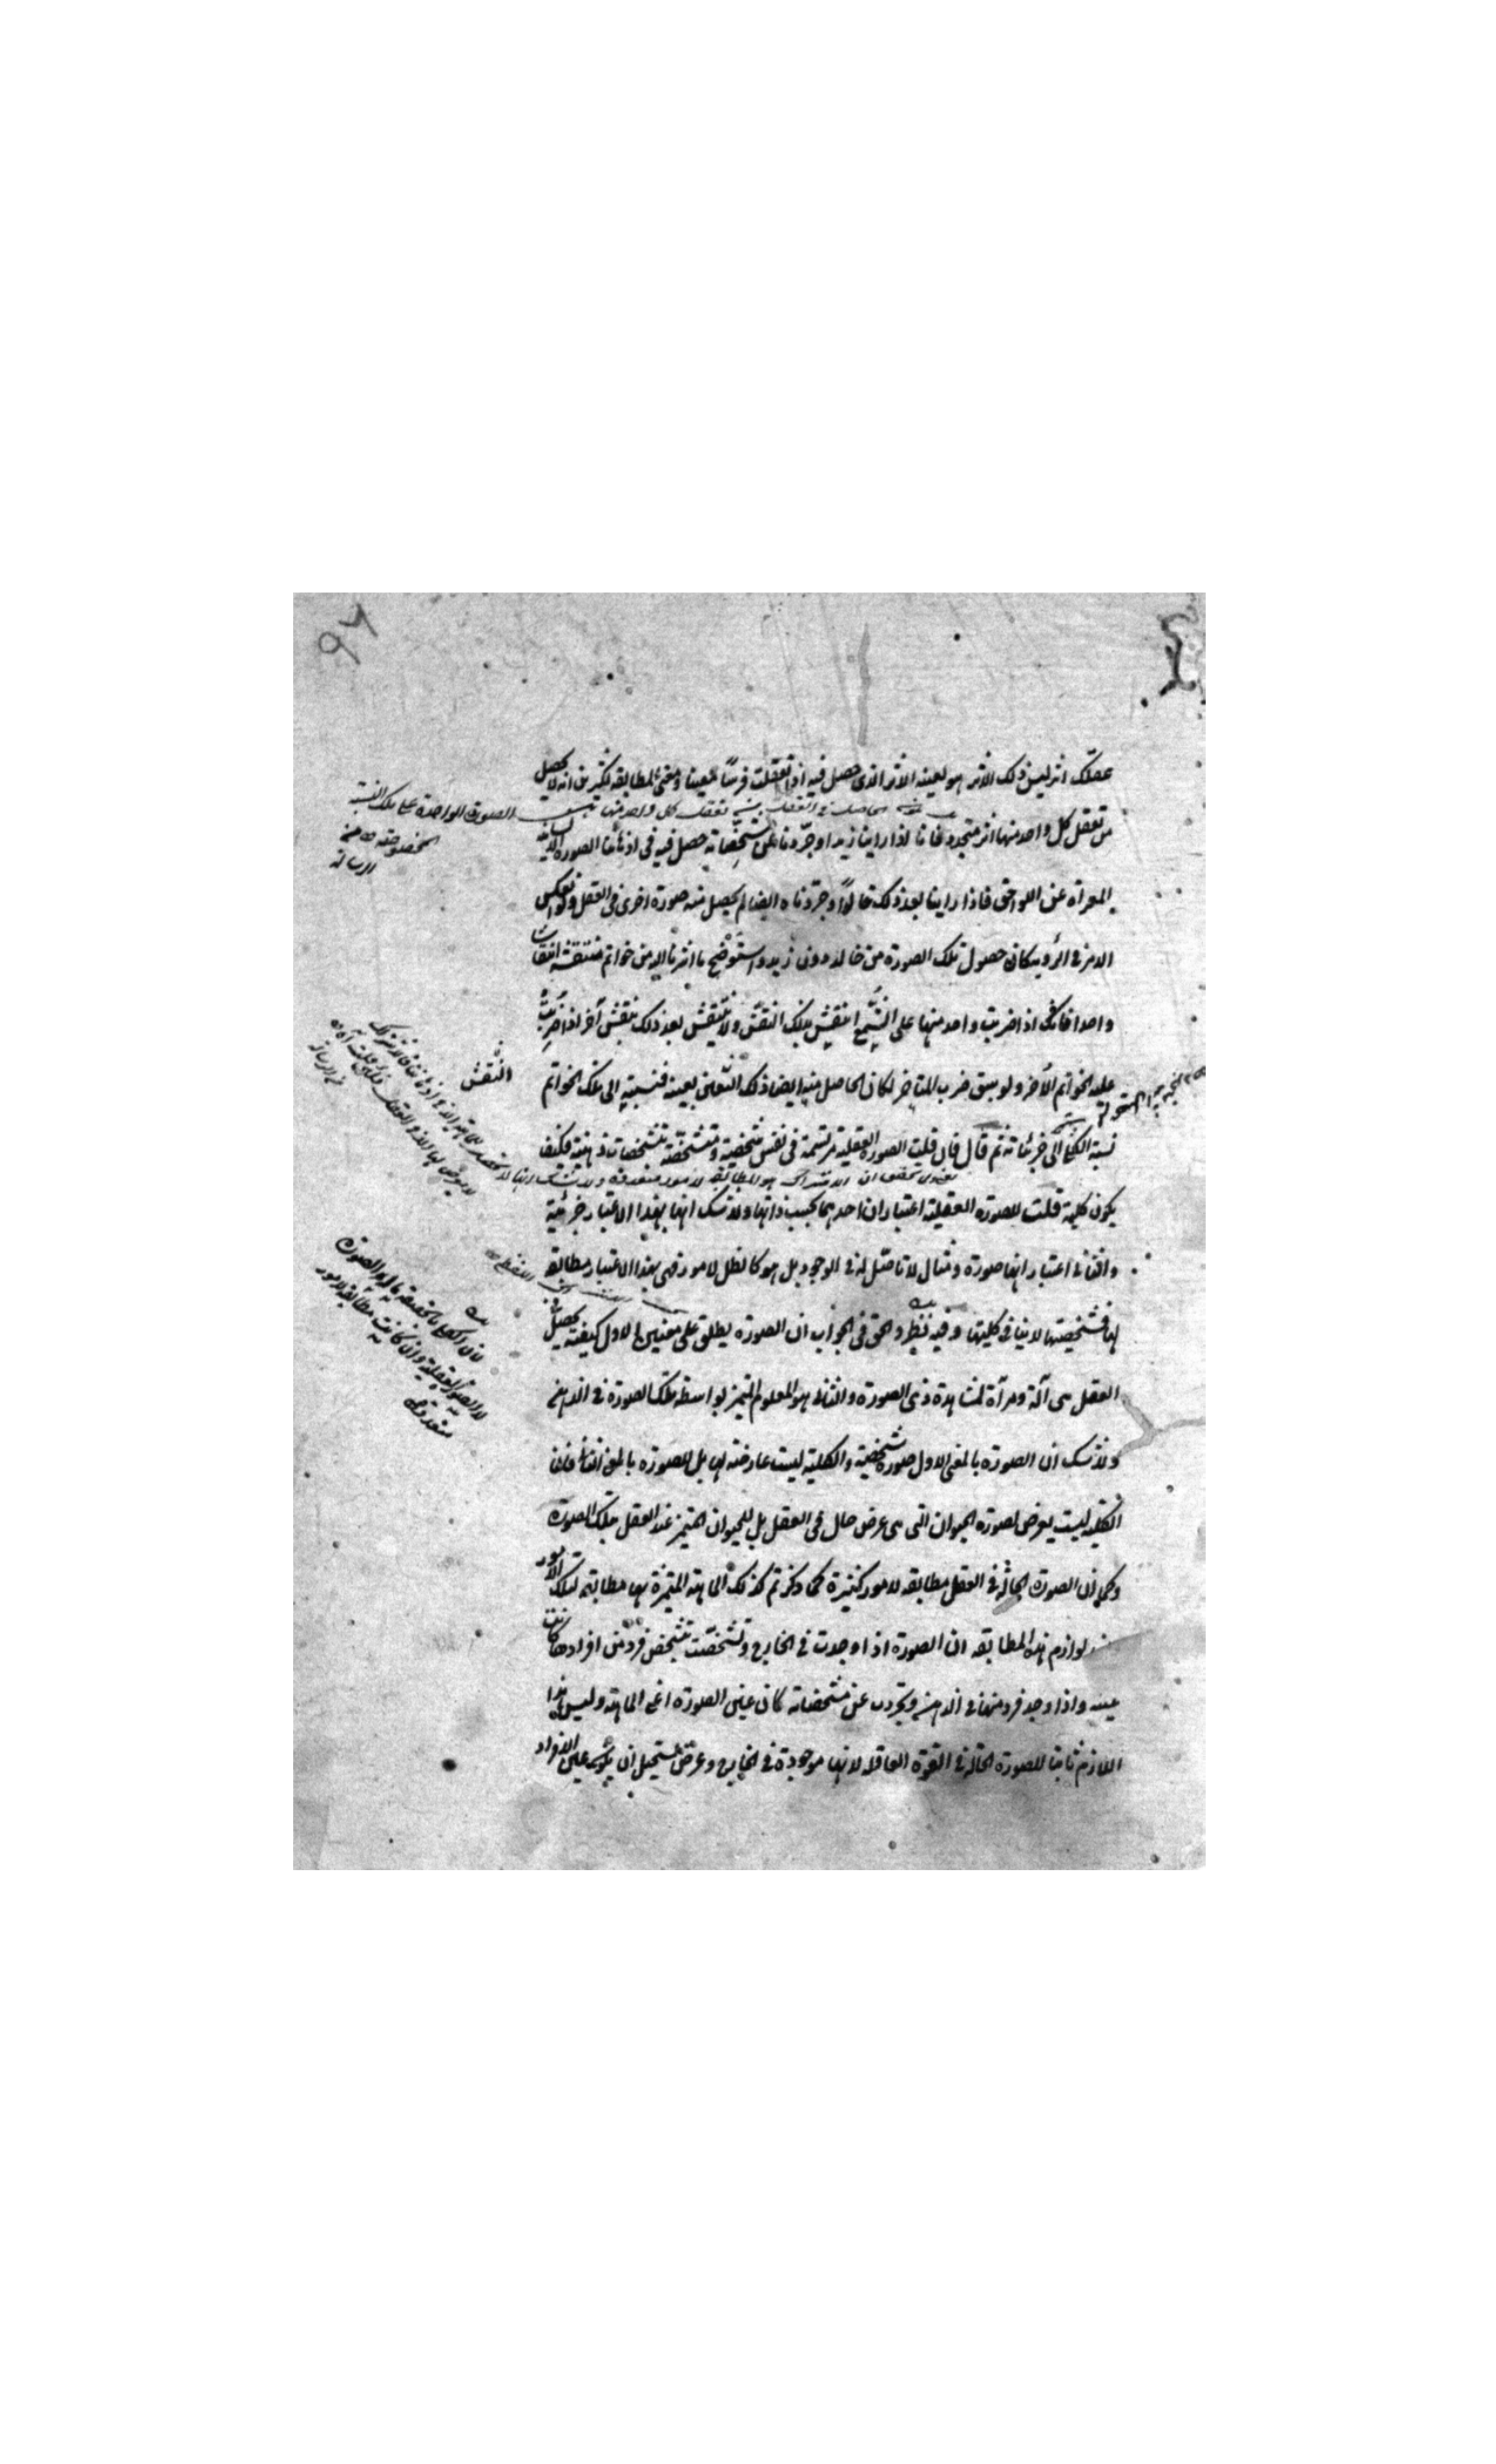 عقلك اثر ليس ذلك الاثر هو بعينه الاثر الذى حصل فيه اذا تعقلت فرسًا معينا ومعنى المطابقة لكثيرين انه لا يحصل
من تعقل كل واحد منها اثر متجدد فانا اذا راينا زيدا وجرّدناه عن مشخّصاته حصل فيه فى اذهاننا الصورة الانسانية
المعراة عن اللواحق فاذا راينا بعد ذلك خالدًا وجرّدناه ايضا لم يحصل منه صورة اخرى فى العقل ولو انعكس
الامر فى الرؤية كان حصول تلك الصورة من خالد دون زيد واستوضح ما اشرنا اليه من خواتم منتقشة انتقاشا
واحدا فانك اذا ضربت واحد منها على الشمع انتقش بذلك النقش ولا ينتقش بعد ذلك بنقش آخر اذا ضربت
عليه الخواتم الأخر ولو سبق ضرب المتاخر لكان الحاصل منه ايضا ذلك النقش بعينه فنسبته الى تلك الخواتم
نسبة الكلى الى جزئياته ثم قال فان قلت الصورة العقلية مرتسمة فى نفس شخصية ومتشخّصة بتشخصات ذهنية فكيف
يكون كلية قلت للصورة العقلية اعتباران احدهما بحسب ذاتها ولا شك انها بهذا الاعتبار جزئية
والثانى اعتبار انها صورة ومثال لا تأصّل له فى الوجود بل هو كالظل لامور فهى بهذا الاعتبار مطابقة
لها فشخصيتها لا ينافى كليتها وفيه نظر والحق فى الجواب ان الصورة يطلق على معنيين الاول كيفية تحصل فى
العقل هى آلة ومرآة لمشاهدة ذى الصورة والثانى هو المعلوم المتميز بواسطة تلك الصورة فى الذهن
ولا شك ان الصورة بالمعنى الاول صورة شخصية والكلية ليست عارضة لها بل للصورة بالمعنى الثانى فان
الكلية ليست يعرض لصورة الحيوان التى هى عرض حال فى العقل بل للحيوان المتميز عند العقل بتلك الصورة
وكما ان الصورة الحالة فى العقل مطابقة لامور كثيرة كما ذكرتم كذلك الماهية المتميزة بها مطابقة لتلك الامور
ومن لوازم هذه المطابقة ان الصورة اذا وجدت فى الخارج وتشخّصت بتشخص فرد من افرادها كانت
عينه واذا وجد فرد منها فى الذهن وتجردت عن مشخصاته كان عين الصورة اعنى الماهية وليس هذا
اللازم ثابتا للصورة الحالة فى القوة العاقلة لانها موجودة فى الخارج وعرض يستحيل ان يكون عين الافراد
الصورة الواحدة على تلك النسبة
المخصوصة منه
الرسالة
النقش
لان الكلى بالحقيقة ما له الصورة
لا الصورة العقلية وان كانت مطابقة لامور
متعددة